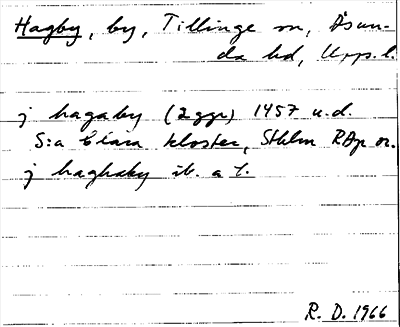 Hagby, by, Tillinge sn, Åsun-
da hd, Uppl.
j hagaby (2 ggr) 1457 u.d.
S:a Clara kloster, Sthlm RAp or.
j haghaby ib. a t.
R. D. 1966